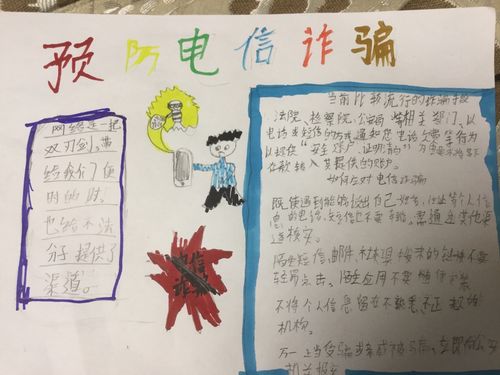 预防电信诈骗
网络是一把
双刃剑,带
给我们了便
时的时,
也给不法
分子提供了
渠道。
当前比较流行的诈骗手段
法院、检察院、公安局等相关部门,以
电话或短信的方式通知您
以核查"安全账户,证明清白"为由要求将名下
存款转入其提供的账户。
如何应对电信诈骗
既使遇到能够说出自己姓名、住址等个人信
息的电话、短信也不要轻信,需通过其他渠
道核实。
陌生短信、邮件、未来源的链接不要
轻易点击。陌生应用不要随便安装
不将个人信息留在不熟悉不正规的
机构。
万一上当受骗或亲戚被骗,立即向公安
机关报案